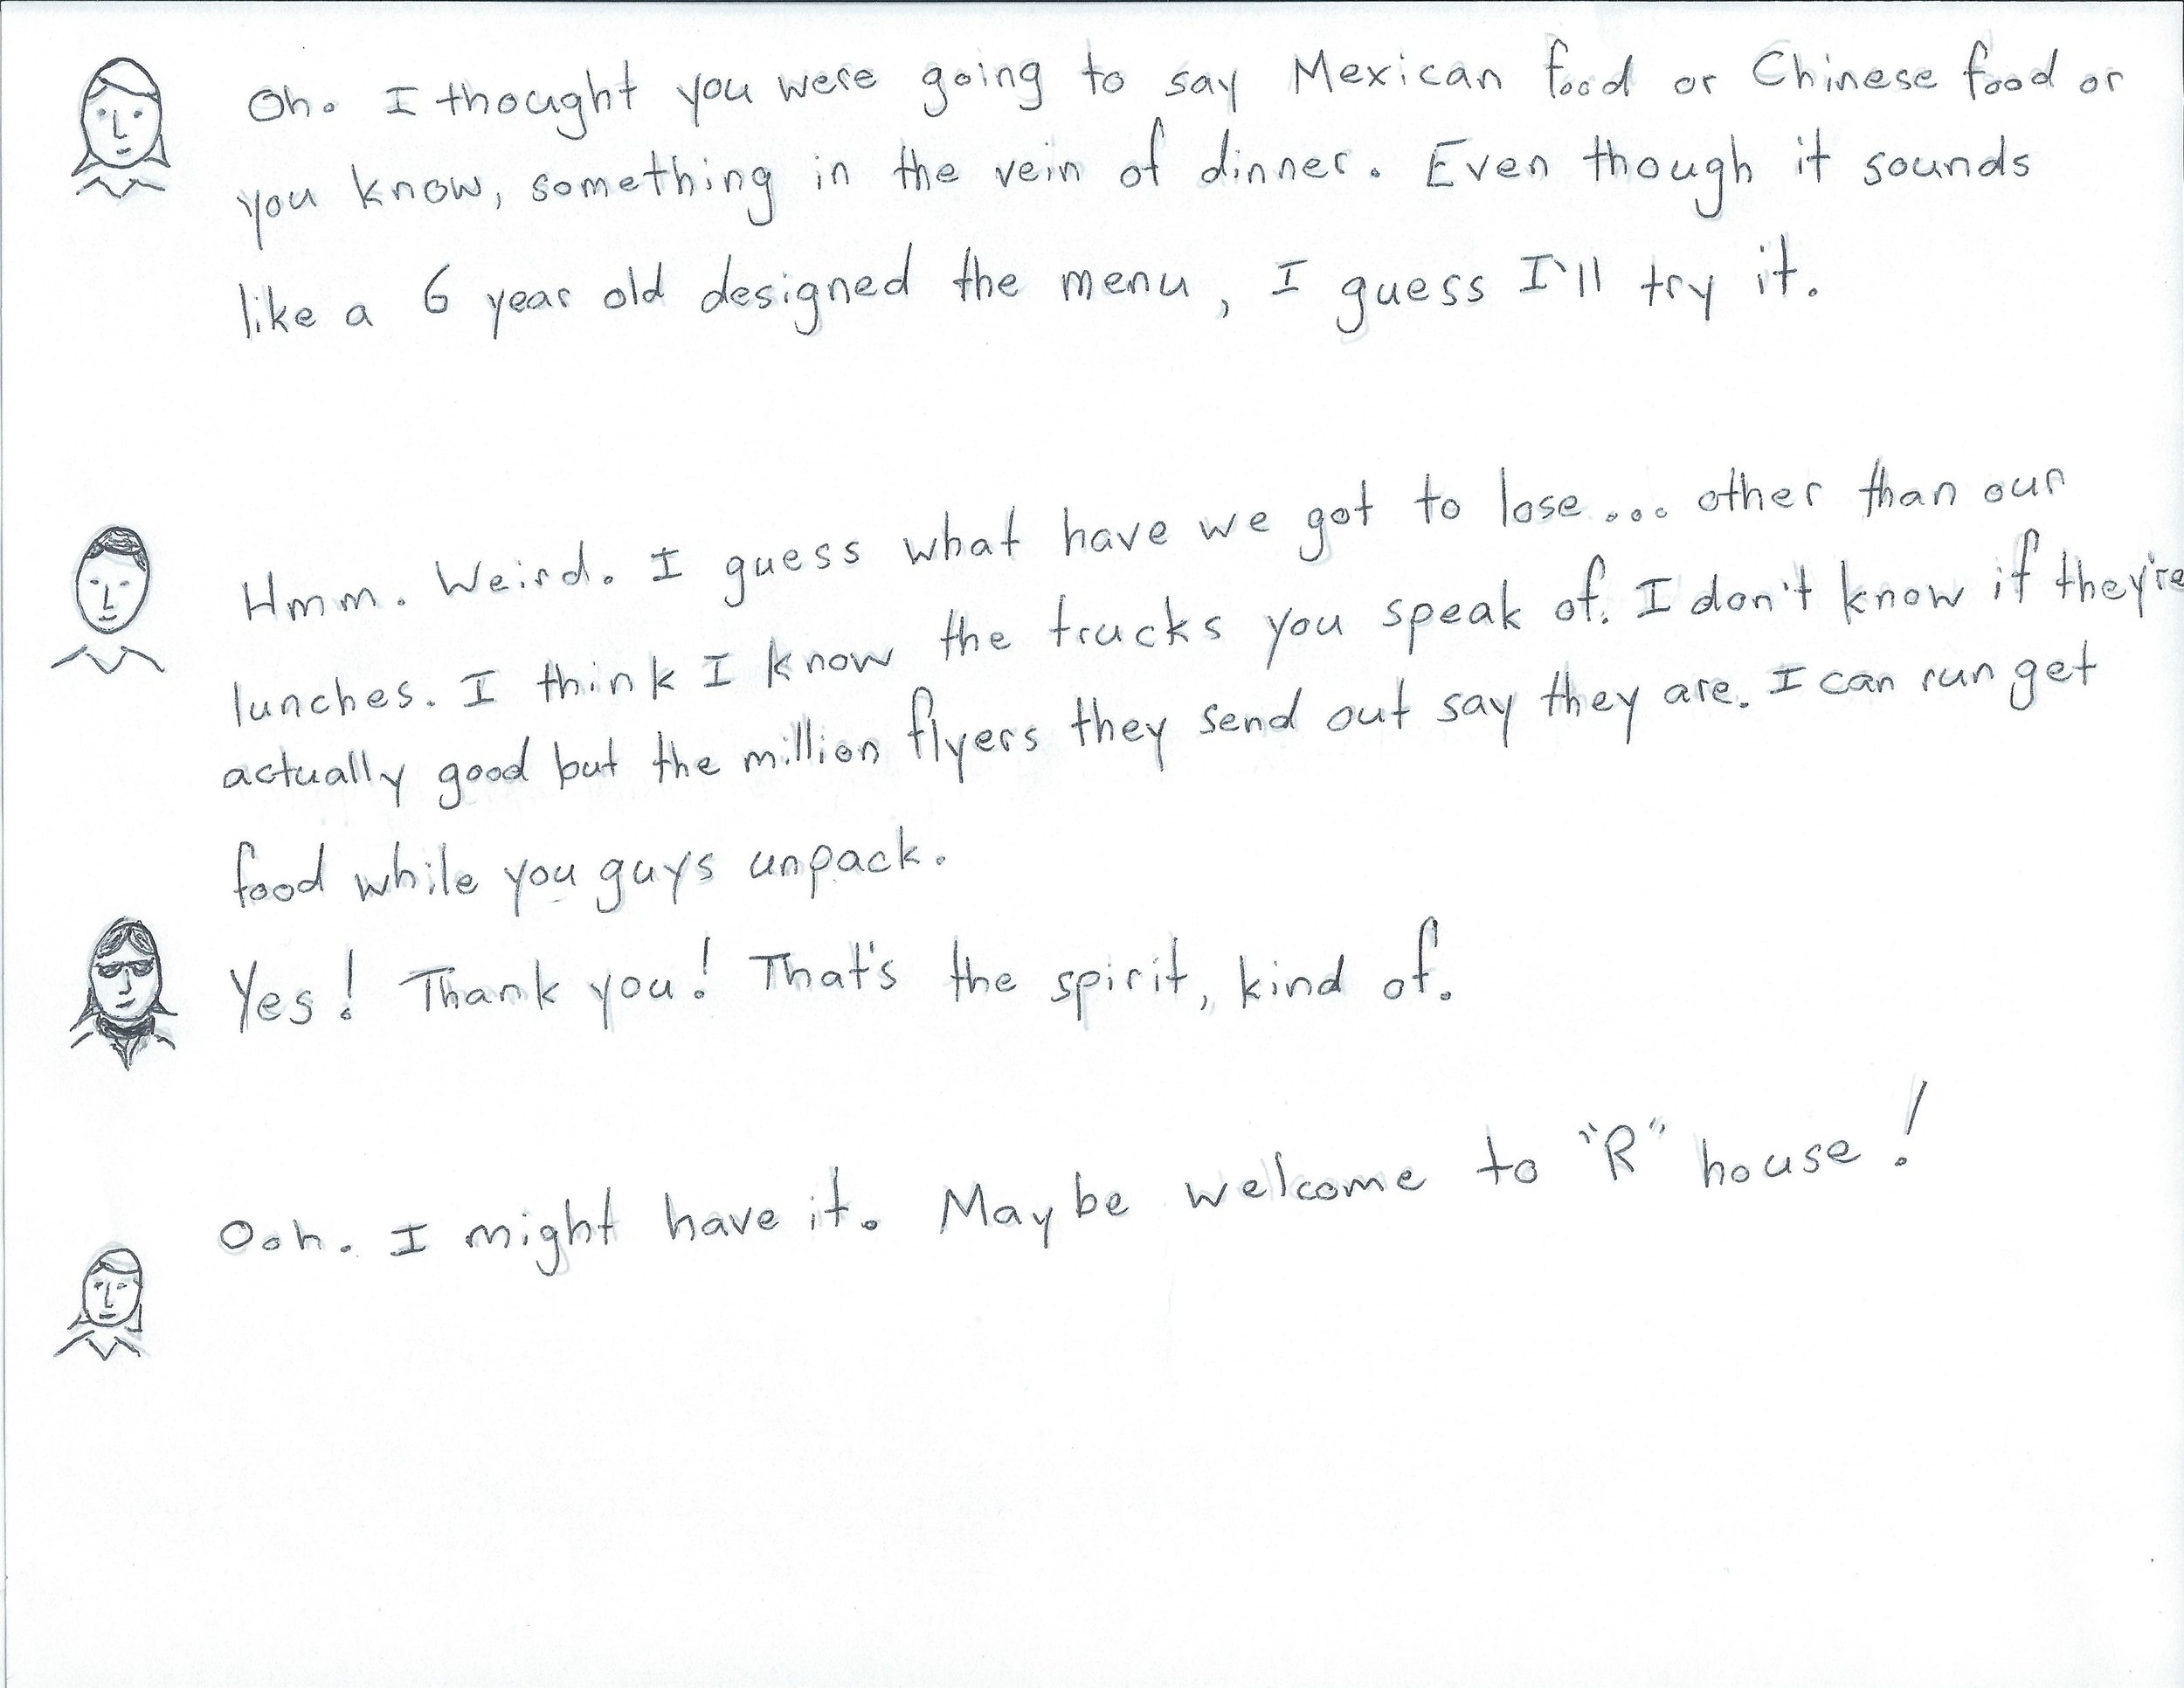 Oh. I thought you were going to say Mexican food or Chinese food or
you know, something in the vein of dinner. Even though it sounds
like a 6 year old designed the menu, I guess I'll try it.
Hmm. Weird. I guess what have we got to lose... other than our
lunches. I think I know the trucks you speak of. I don't know if they're
actually good but the million flyers they send out say they are. I can run get
food while you guys unpack.
Yes! Thank you! That's the spirit, kind of.
Ooh. I might have it. Maybe welcome to "R" house!